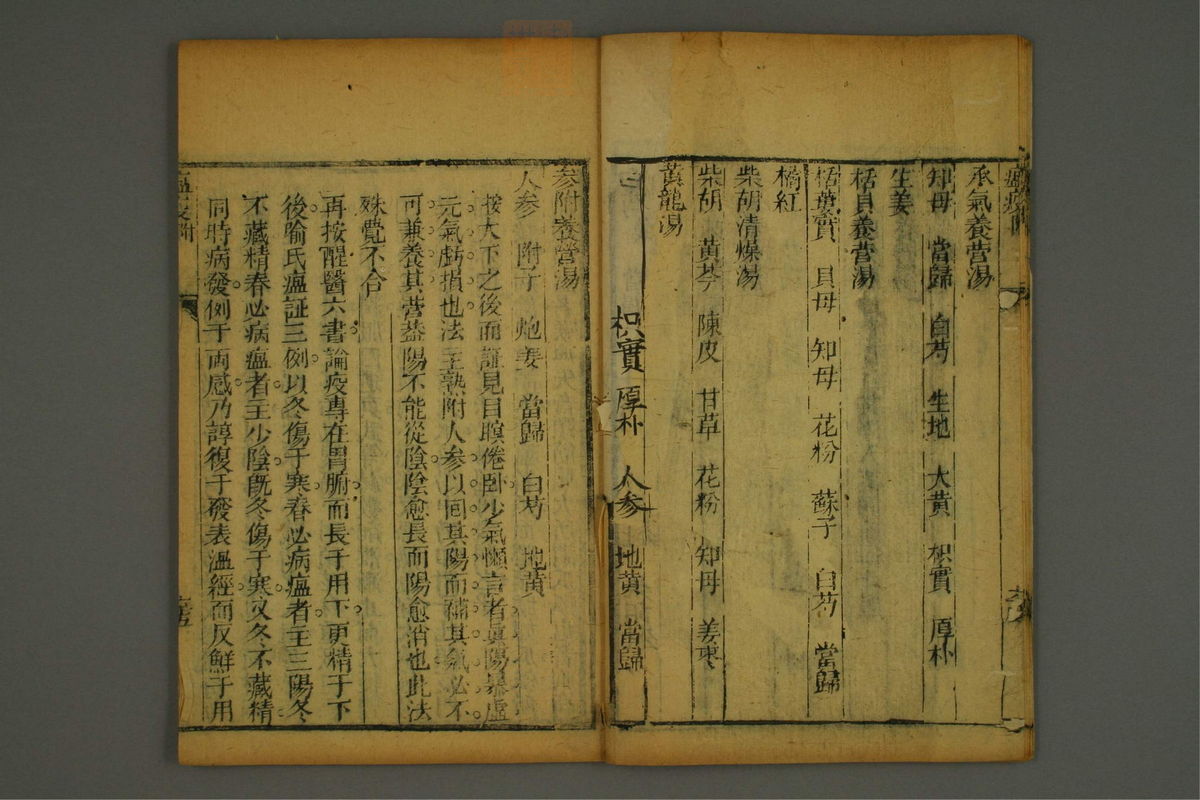 承氣養营湯
知母 當歸 白芍 生地 大黄 枳實 厚朴
生姜
栝貝養营湯
栝蔞實 貝母 知母 花粉 蘇子 白芍 當歸
橘紅
柴胡清燥湯
柴胡 黄芩 陳皮 甘草 花粉 知母 姜枣
黄龍湯
枳實 厚朴 人参 地黄 當歸
参附養营湯
人参 附子 炮姜 當歸 白芍 地黄
按大下之後而證見目瞑倦卧少氣懶言者真陽暴虛
元氣虧損也法主熟附人参以囘其陽而補其氣必不
可兼養其营葢陽不能從陰陰愈長而陽愈消也此法
殊覺不合
再按醒醫六書論疫專在胃腑而長于用下更精于下
後喻氏瘟証三例以冬傷于寒春必病瘟者主三陽冬
不藏精春必病瘟者主少陰既冬傷于寒又冬不藏精
同時病發例于両感乃諄復于發表溫經而反鮮于用